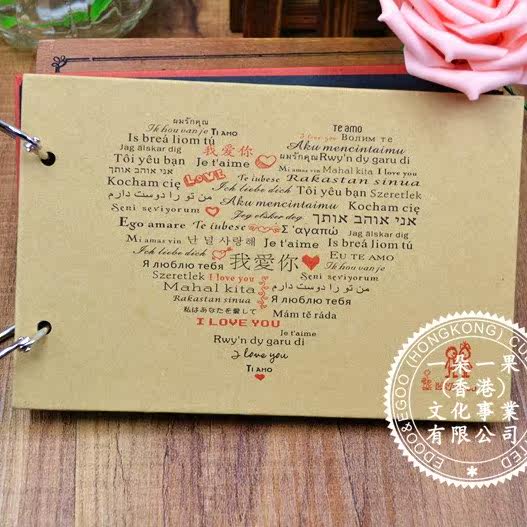 ผมรักคุณ
Ik hou van je TI AMO
Is breá liom tú
Jag älskar dig 我爱你
Tôi yêu bạn Je t'aime
Kocham cię LOVE Te iubesc
אני אוהב אותך Ich liebe dich
من تو را دوست دارم
Seni seviyorum
Te amo
I love you Волим те
Aku mencintaimu
ผมรักคุณ Rwy'n dy garu di
Mi amas vin Je t'aime I love you
Rakastan sinua
Tôi yêu bạn Szeretlek
Aku mencintaimu Kocham cię
Jeg elsker dog אני אוהב אותך
Ego amare Te iubesc Σ'αγαπώ Jag älskar dig
Mi amas vin 난 널 사랑해 Je t'aime Is breá liom tú
Ich liebe dich 我愛你 EU TE AMO
Ik hou van je
Я люблю тебя Я люблю тебя
Szeretlek I love you من تو را دوست دارم
Mahal kita Mahal kita
Rakastan sinua Szeretlek
私はあなたを愛して Mám tě ráda
I LOVE YOU Je t'aime
Rwy'n dy garu di
I love you
TI AMO
EDOO&EGOO (HONGKONG) CU
朵一果
(香港)
文化事業
有限公司